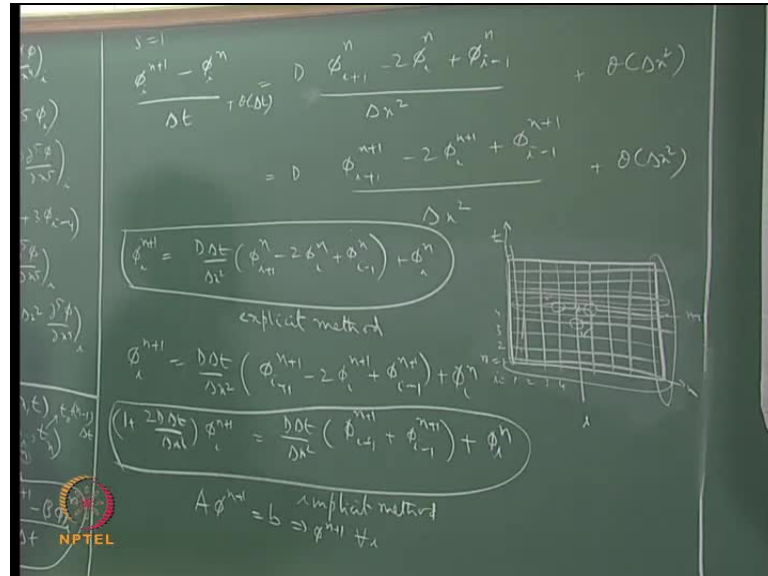 s=1
ϕ_i^{n+1} - ϕ_i^n / Δt + O(Δt) = D ϕ_{i+1}^n - 2ϕ_i^n + ϕ_{i-1}^n / Δx² + O(Δx²)
= D ϕ_{i+1}^{n+1} - 2ϕ_i^{n+1} + ϕ_{i-1}^{n+1} / Δx² + O(Δx²)
ϕ_i^{n+1} = DΔt/Δx² (ϕ_{i+1}^n - 2ϕ_i^n + ϕ_{i-1}^n) + ϕ_i^n
explicit method
ϕ_i^{n+1} = DΔt/Δx² (ϕ_{i+1}^{n+1} - 2ϕ_i^{n+1} + ϕ_{i-1}^{n+1}) + ϕ_i^n
(1+ 2DΔt/Δx²) ϕ_i^{n+1} = DΔt/Δx² (ϕ_{i+1}^{n+1} + ϕ_{i-1}^{n+1}) + ϕ_i^n
implicit method
Aϕ^{n+1} = b ⇒ ϕ^{n+1} ∀i
t
4
3
2
n=1
i= 1 2 3 4
i
NPTEL